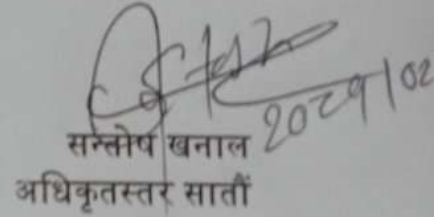 2029/02
सन्तोष खनाल
अधिकृतस्तर सातौं